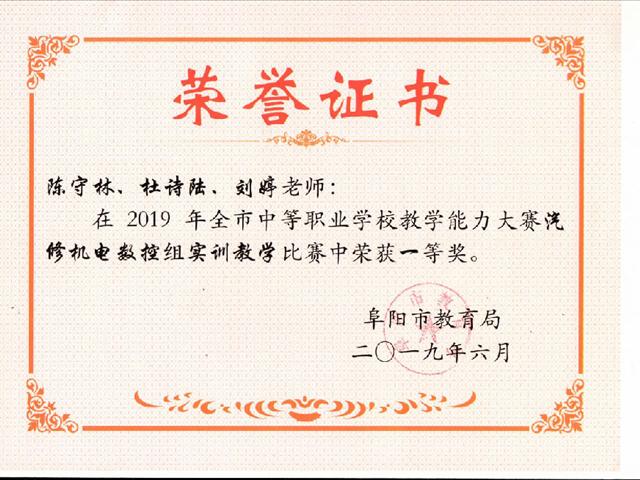 荣誉证书
陈守林、杜诗陆、刘婷老师：
在 2019 年全市中等职业学校教学能力大赛汽
修机电数控组实训教学比赛中荣获一等奖。
阜阳市教育局
二〇一九年六月